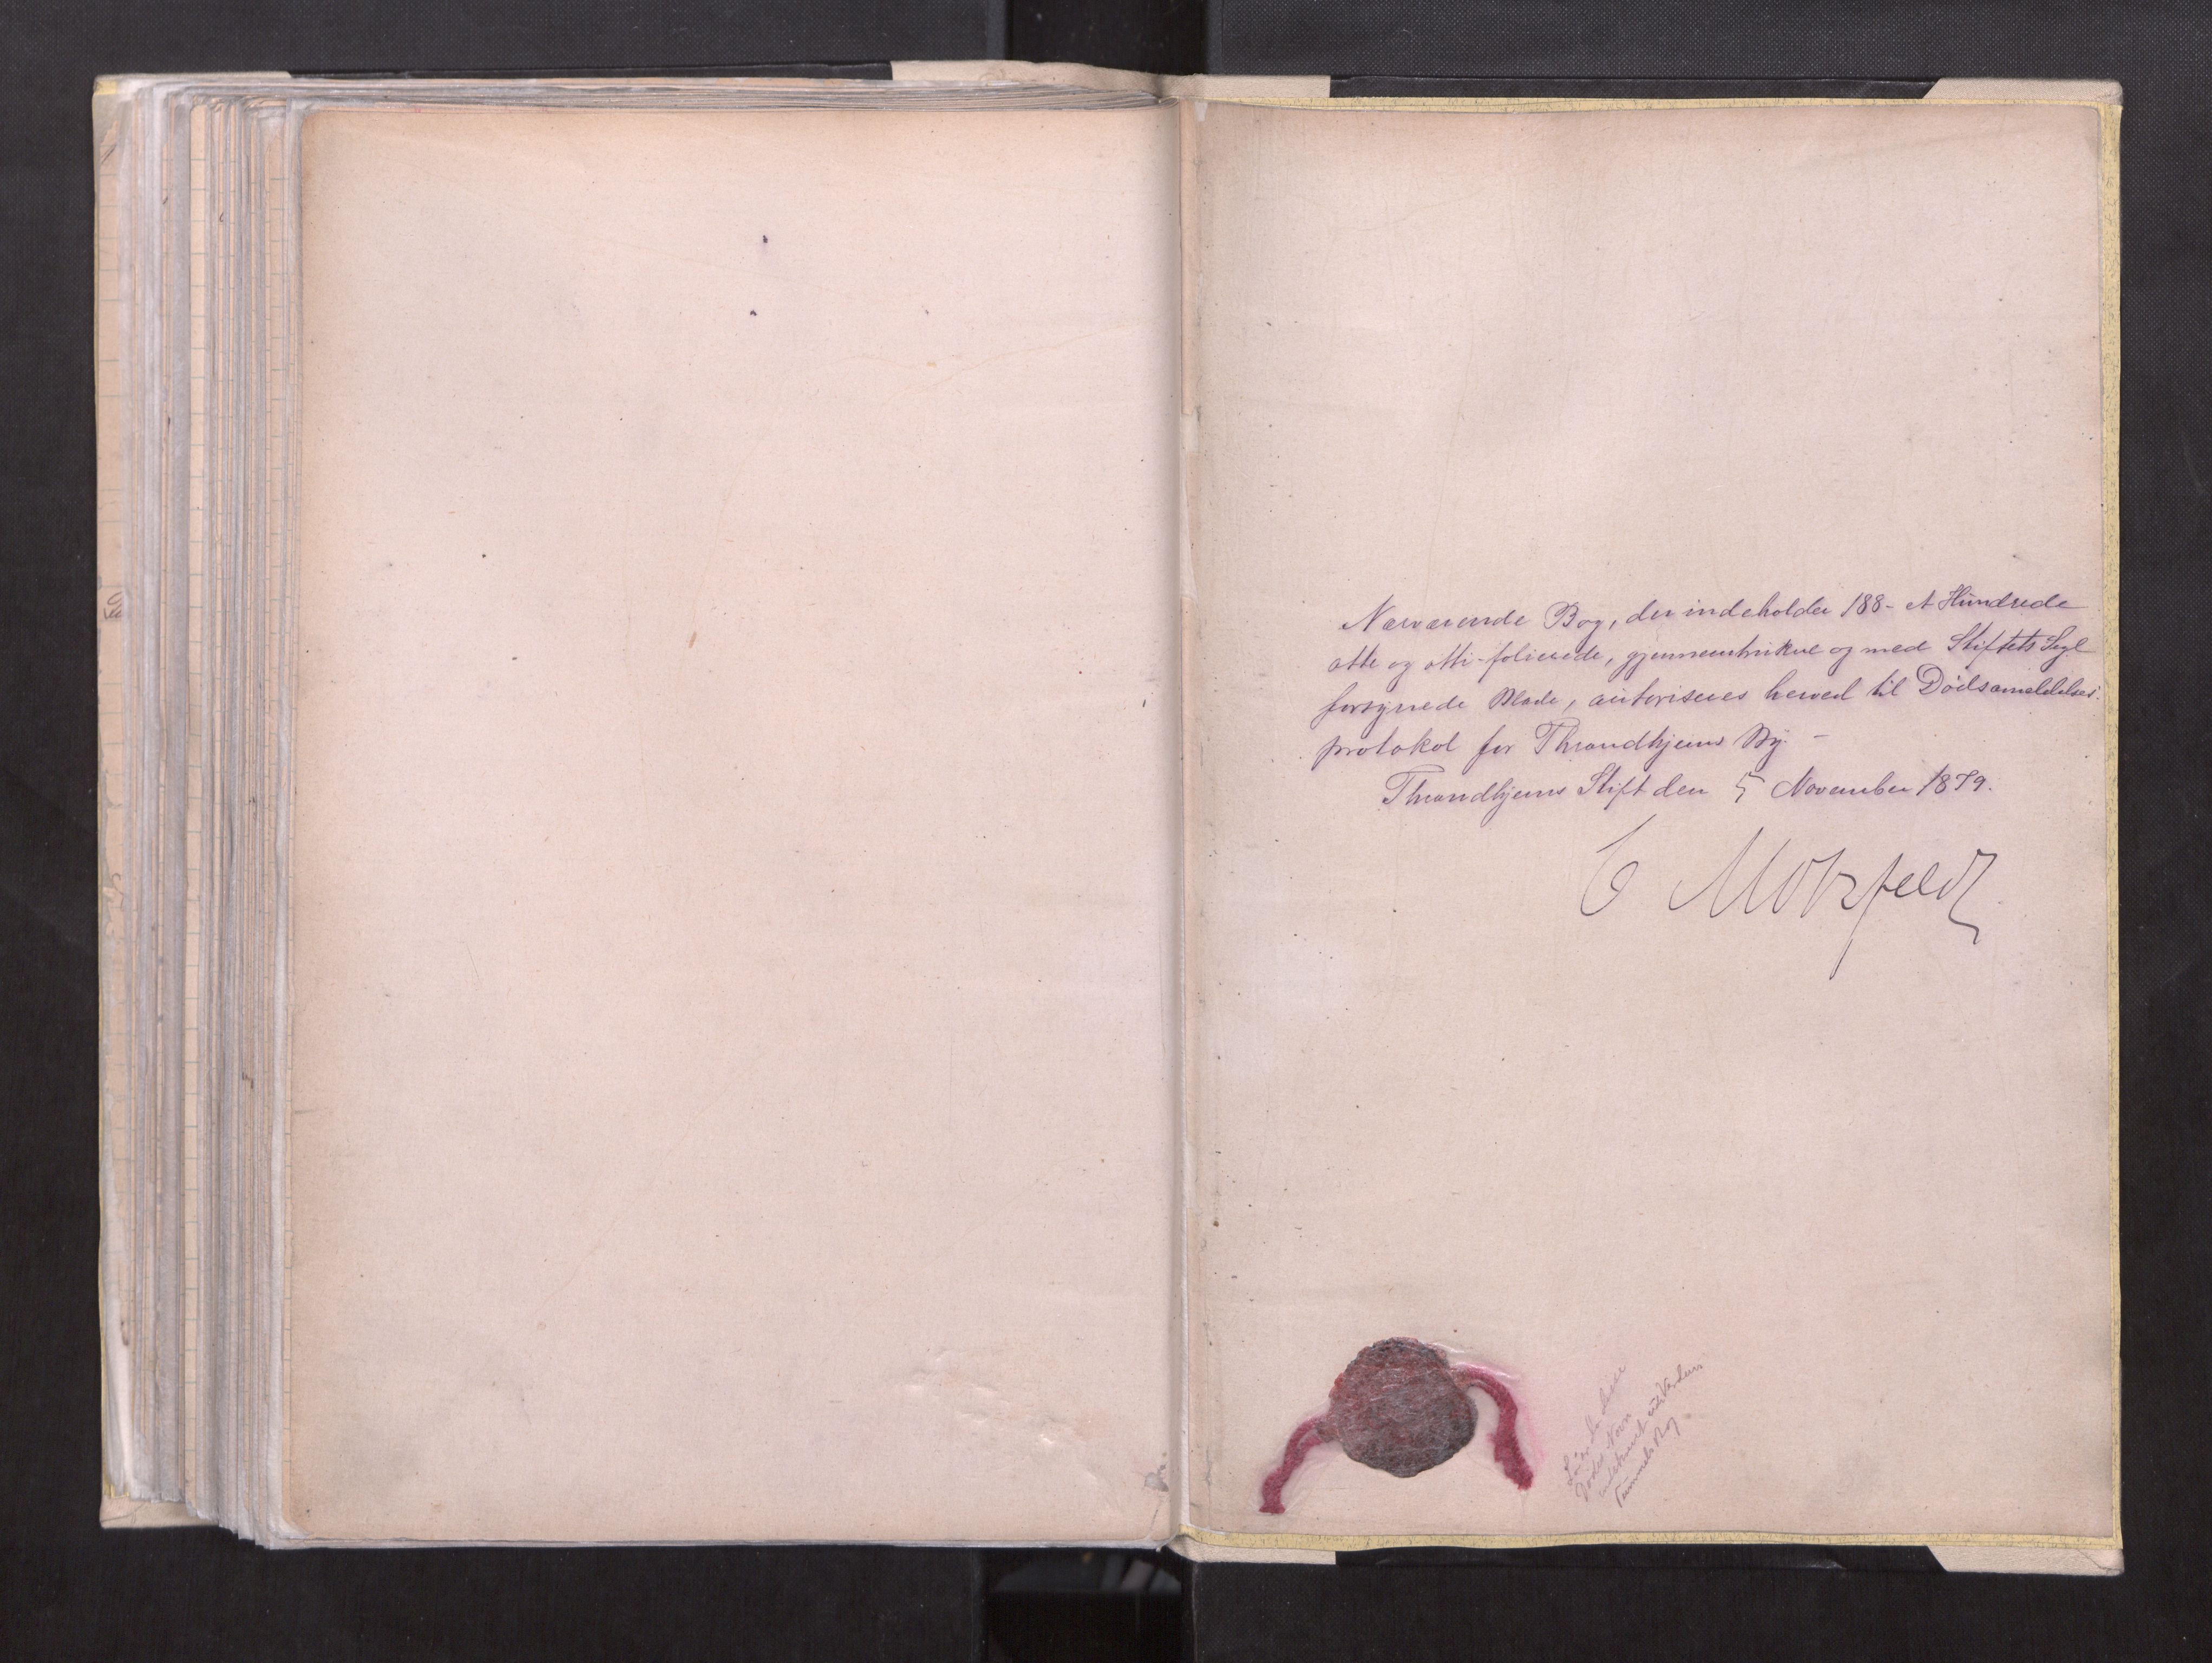 Nærværende Bog, der indeholder 188- et Hundrede
otte og otti-folierede, gjennemtrukne og med Stiftets Segl
forsynede Blade, autoriseres herved til Dødsanmeldelses-
protokol for Throndhjems By. -
Throndhjems Stift den 5 November 1879.
C Motzfeldt